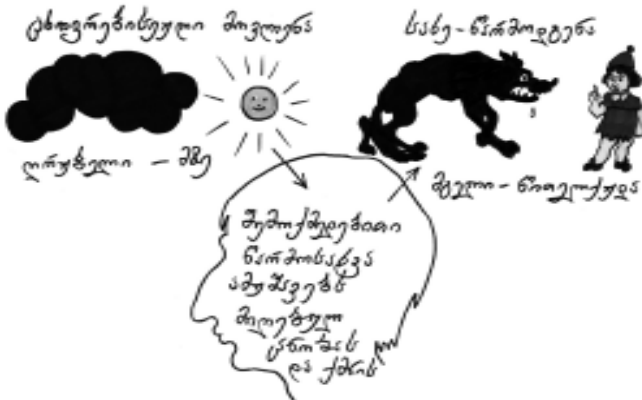 ცხოვრებისეული მოვლენა
სახე-წარმოდგენა
ღრუბელი - მზე
მგელი - წითელქუდა
შემოქმედებითი
წარმოსახვა
ამუშავებს
მიღებულ
ცნობას
და ქმნის